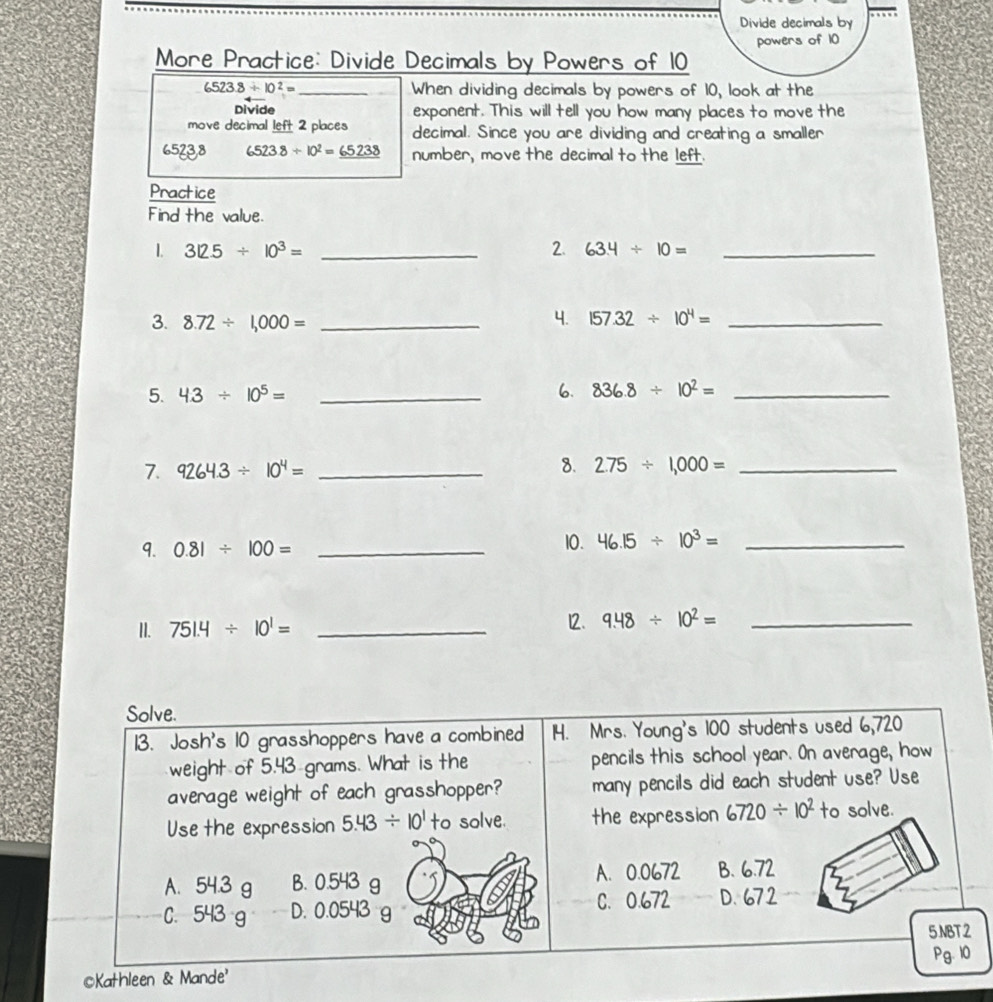 Divide decimals by
powers of 10
More Practice: Divide Decimals by Powers of 10
6523.8 ÷ 10² = ________
Divide
move decimal left 2 places
6523.8 6523.8 ÷ 10² = 65.238
When dividing decimals by powers of 10, look at the
exponent. This will tell you how many places to move the
decimal. Since you are dividing and creating a smaller
number, move the decimal to the left.
Practice
Find the value.
1. 312.5 ÷ 10³ = ________ 2. 63.4 ÷ 10 = ________
3. 8.72 ÷ 1,000 = ________ 4. 157.32 ÷ 10⁴ = ________
5. 4.3 ÷ 10⁵ = ________ 6. 836.8 ÷ 10² = ________
7. 9264.3 ÷ 10⁴ = ________ 8. 2.75 ÷ 1,000 = ________
9. 0.81 ÷ 100 = ________ 10. 46.15 ÷ 10³ = ________
11. 751.4 ÷ 10¹ = ________ 12. 9.48 ÷ 10² = ________
Solve.
13. Josh's 10 grasshoppers have a combined
weight of 5.43 grams. What is the
average weight of each grasshopper?
Use the expression 5.43 ÷ 10¹ to solve.
A. 54.3 g B. 0.543 g
C. 543 g D. 0.0543 g
14. Mrs. Young's 100 students used 6,720
pencils this school year. On average, how
many pencils did each student use? Use
the expression 6720 ÷ 10² to solve.
A. 0.0672 B. 6.72
C. 0.672 D. 67.2
5.NBT.2
Pg. 10
©Kathleen & Mande'